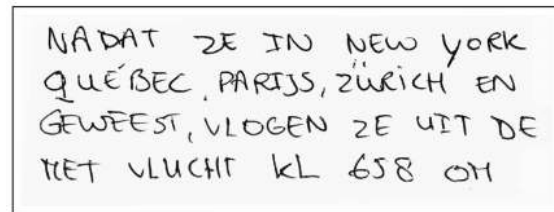 NADAT ZE IN NEW YORK
QUÉBEC, PARIJS, ZÜRICH EN
GEWEEST, VLOGEN ZE UIT DE
MET VLUCHT KL 658 OM